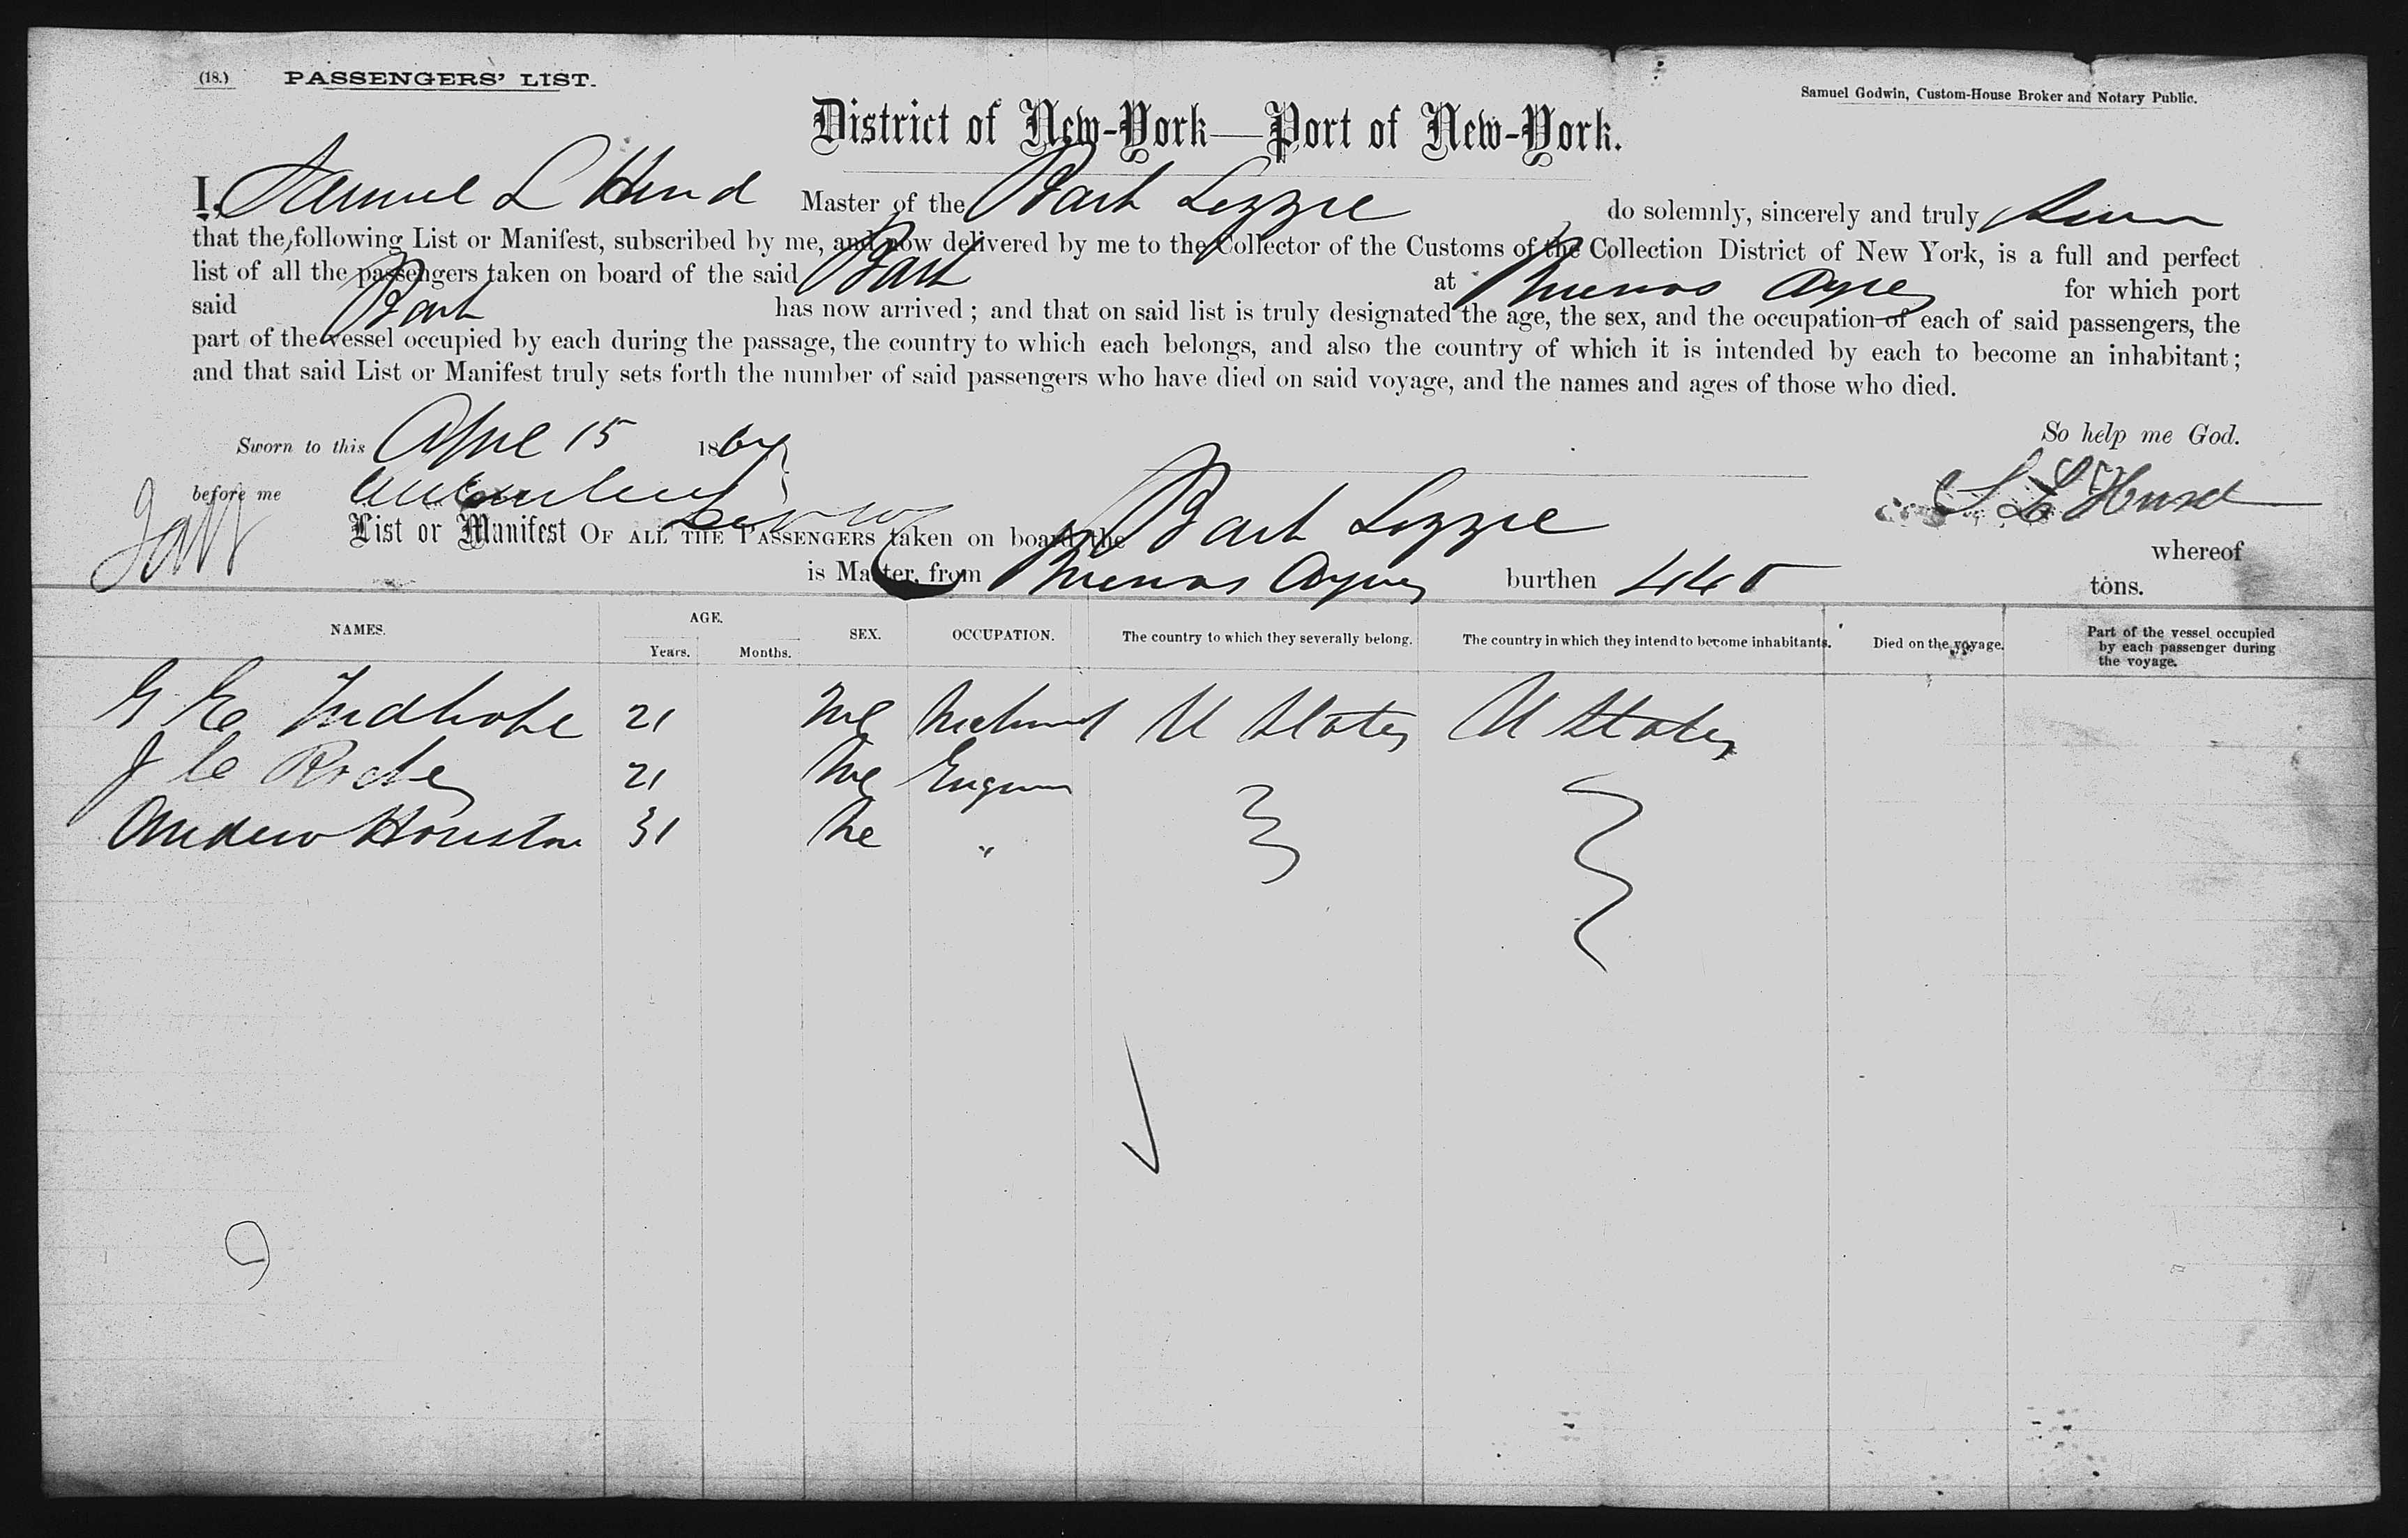 (18.) PASSENGERS' LIST.
Samuel Godwin, Custom-House Broker and Notary Public.
District of New-York—Port of New-York.
I, Samuel L Hurd Master of the Bark Lizzie do solemnly, sincerely and truly Swear
that the following List or Manifest, subscribed by me, and now delivered by me to the Collector of the Customs of the Collection District of New York, is a full and perfect
list of all the passengers taken on board of the said Bark at Buenos Ayres for which port
said Bark has now arrived; and that on said list is truly designated the age, the sex, and the occupation of each of said passengers, the
part of the vessel occupied by each during the passage, the country to which each belongs, and also the country of which it is intended by each to become an inhabitant;
and that said List or Manifest truly sets forth the number of said passengers who have died on said voyage, and the names and ages of those who died.
So help me God.
Sworn to this April 15 1867
before me
S L Hurd
List or Manifest OF ALL THE PASSENGERS taken on board the Bark Lizzie whereof
is Master, from Buenos Ayres burthen 440 tons.
NAMES. AGE. Years. Months. SEX. OCCUPATION. The country to which they severally belong. The country in which they intend to become inhabitants. Died on the voyage. Part of the vessel occupied by each passenger during the voyage.
21 Me U States U States
J C 21 Me Engineer
Andrew Houston 31 Me "